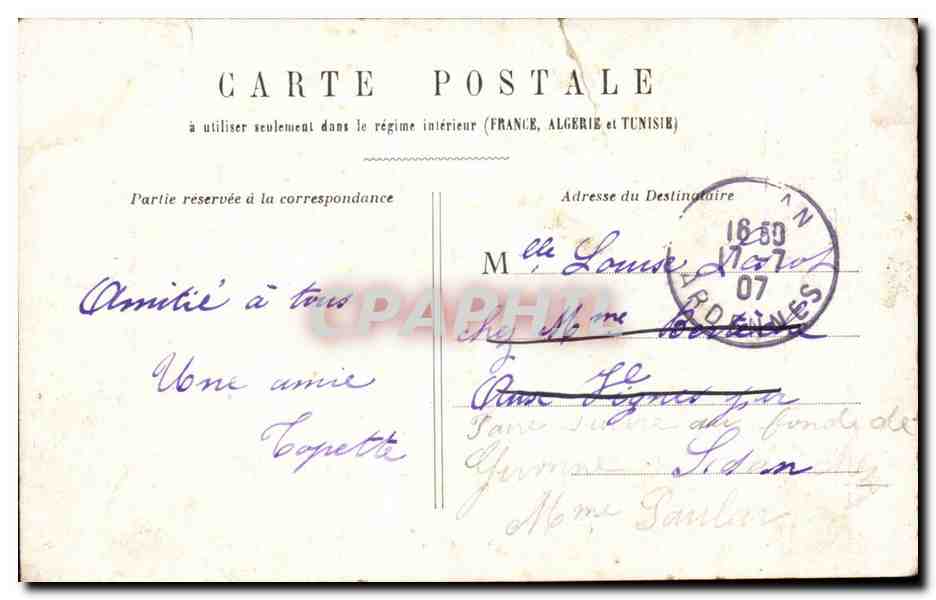 CARTE POSTALE
à utiliser seulement dans le régime intérieur (FRANCE, ALGERIE et TUNISIE)
Partie réservée à la correspondance
Amitié à tous
Une amie
Topette
Adresse du Destinataire
Mlle Louise
chez Mme
Aux Vignes par
Sedan
Faire suivre au fond de
Givonne chez
Mme
16 50
17-7
07
ARDENNES
CPAPHIL